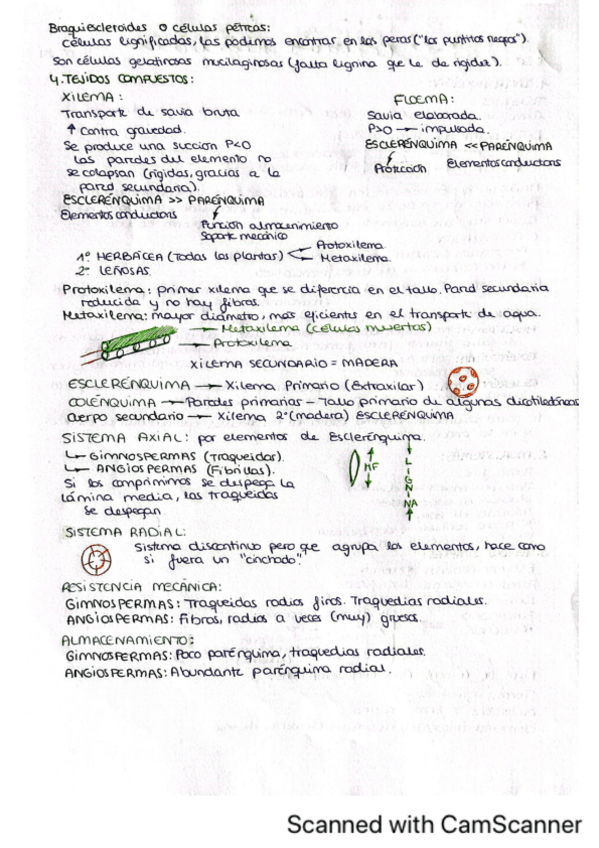 Braquiescleroides o células pétreas:
células lignificadas, las podemos encontrar en las peras ("los puntitos negros").
Son células gelatinosas mucilaginosas (falta lignina que le de rigidez).
4. TEJIDOS COMPUESTOS:
XILEMA:
Transporte de savia bruta
↑ Contra gravedad.
Se produce una succion P<0
Las paredes del elemento no
se colapsan (rígidas, gracias a la
pared secundaria).
ESCLERÉNQUIMA >> PARÉNQUIMA
Elementos conductores
Función almacenimiento
Soporte mecánico
FLOEMA:
Savia elaborada.
P>0 → impulsada.
ESCLERÉNQUIMA << PARÉNQUIMA
Protección
Elementos conductores
1º HERBÁCEA (Todas las plantas)
Protoxilema
Metaxilema
2º LEÑOSAS.
Protoxilema: primer xilema que se diferencia en el tallo. Pared secundaria
reducida y no hay fibras.
Metaxilema: mayor diámetro, más eficientes en el transporte de agua.
→ Metaxilema (células muertas)
→ Protoxilema
XILEMA SECUNDARIO = MADERA
ESCLERÉNQUIMA → Xilema Primario (Extraxilar)
COLÉNQUIMA → Paredes primarias - Tallo primario de algunas dicotiledóneas
Cuerpo secundario → Xilema 2º (madera) ESCLERÉNQUIMA
SISTEMA AXIAL: por elementos de Esclerénquima.
↳ GIMNOSPERMAS (Traqueidas).
↳ ANGIOSPERMAS (Fibrillas).
Si los comprimimos se despega la
lámina media, las traqueidas
se despegan.
MF
LIGNINA
SISTEMA RADIAL:
Sistema discontinuo pero que agrupa los elementos, hace como
si fuera un "cinchado".
RESISTENCIA MECÁNICA:
GIMNOSPERMAS: Traqueidas radios finos. Traquedias radiales.
ANGIOSPERMAS: Fibras, radios a veces (muy) gruesos.
ALMACENAMIENTO:
GIMNOSPERMAS: Poco parénquima, traquedias radiales.
ANGIOSPERMAS: Abundante parénquima radial.
Scanned with CamScanner